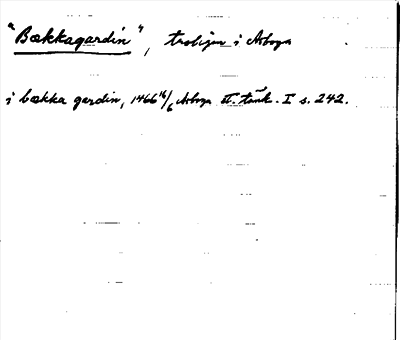 "Bækkagardin", troligen i Arboga
i bækka gardin, 1466 16/6 Arboga st. tänk. I s. 242.